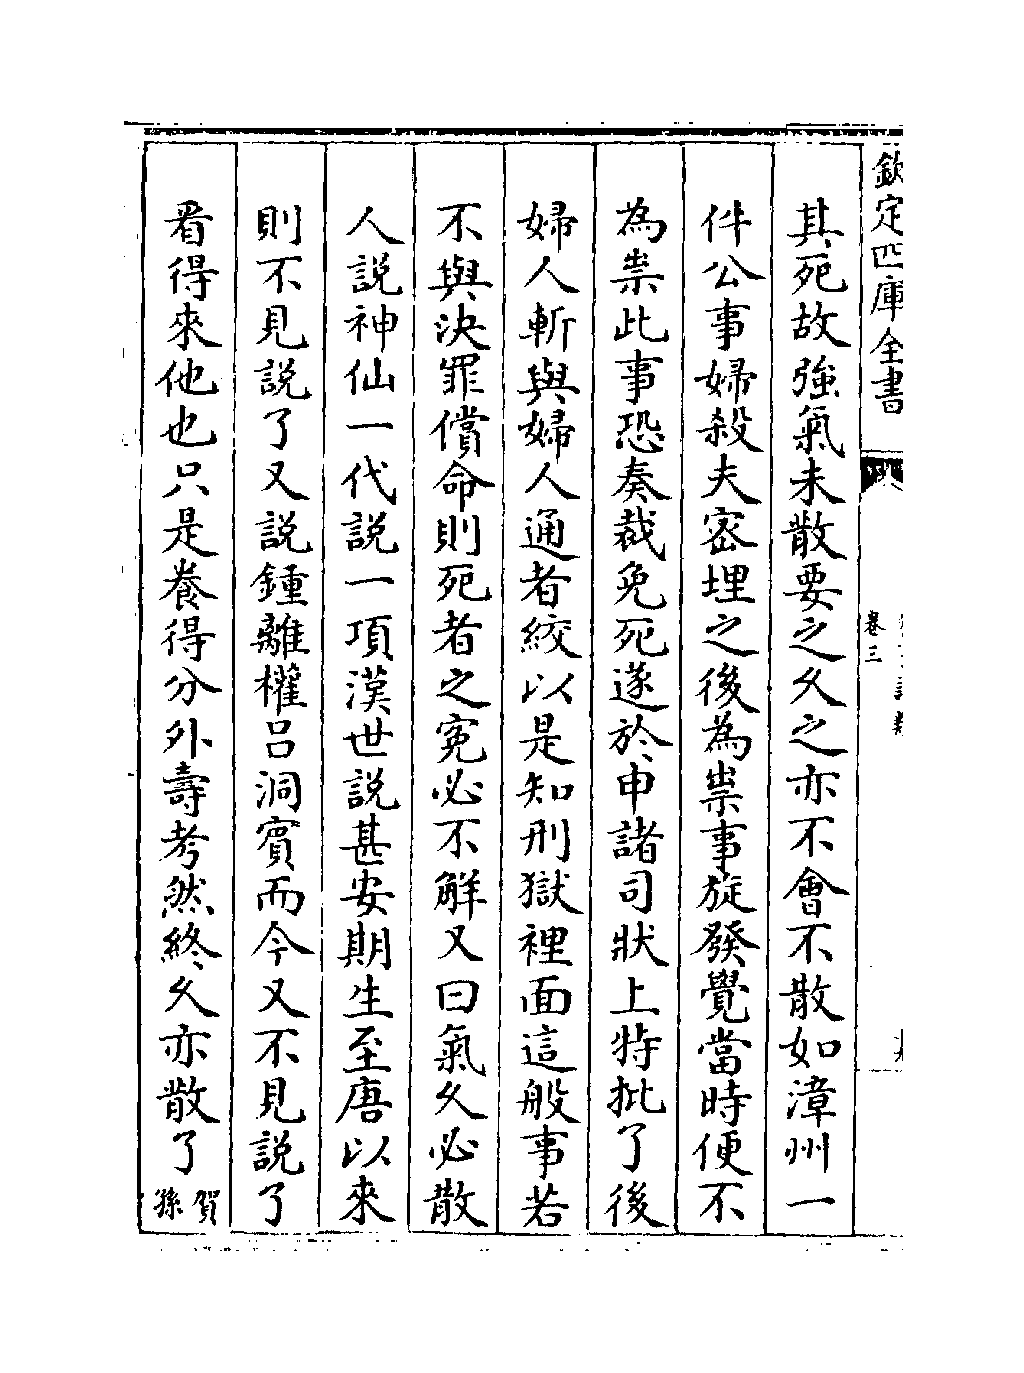 欽定四庫全書
卷三
其死故強氣未散要之久之亦不會不散如漳州一
件公事婦殺夫密埋之後為祟事旋發覺當時便不
為祟此事恐奏裁免死遂於申諸司狀上特批了後
婦人斬與婦人通者絞以是知刑獄裡面這般事若
不與決罪償命則死者之寃必不解又曰氣久必散
人說神仙一代說一項漢世說甚安期生至唐以來
則不見說了又說鍾離權呂洞賓而今又不見說了
看得來他也只是養得分外壽考然終久亦散了賀
孫